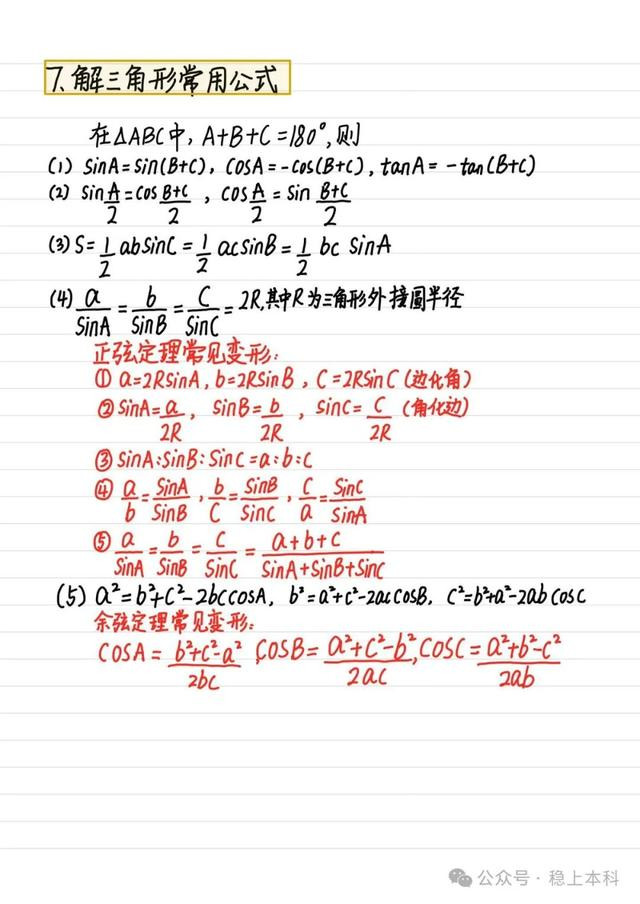 7.解三角形常用公式
在△ABC中，A+B+C=180°，则
(1) sinA=sin(B+C)，cosA=-cos(B+C)，tanA=-tan(B+C)
(2) sin A/2=cos (B+C)/2，cos A/2=sin (B+C)/2
(3) S=1/2 absinC=1/2 acsinB=1/2 bc sinA
(4) a/sinA=b/sinB=c/sinC=2R，其中R为三角形外接圆半径
正弦定理常见变形：
① a=2RsinA，b=2RsinB，c=2RsinC（边化角）
② sinA=a/2R，sinB=b/2R，sinC=c/2R（角化边）
③ sinA:sinB:sinC=a:b:c
④ a/b=sinA/sinB，b/c=sinB/sinC，c/a=sinC/sinA
⑤ a/sinA=b/sinB=c/sinC=(a+b+c)/(sinA+sinB+sinC)
(5) a²=b²+c²-2bccosA，b²=a²+c²-2accosB，c²=b²+a²-2abcosC
余弦定理常见变形：
cosA=(b²+c²-a²)/2bc，cosB=(a²+c²-b²)/2ac，cosC=(a²+b²-c²)/2ab
公众号·稳上本科